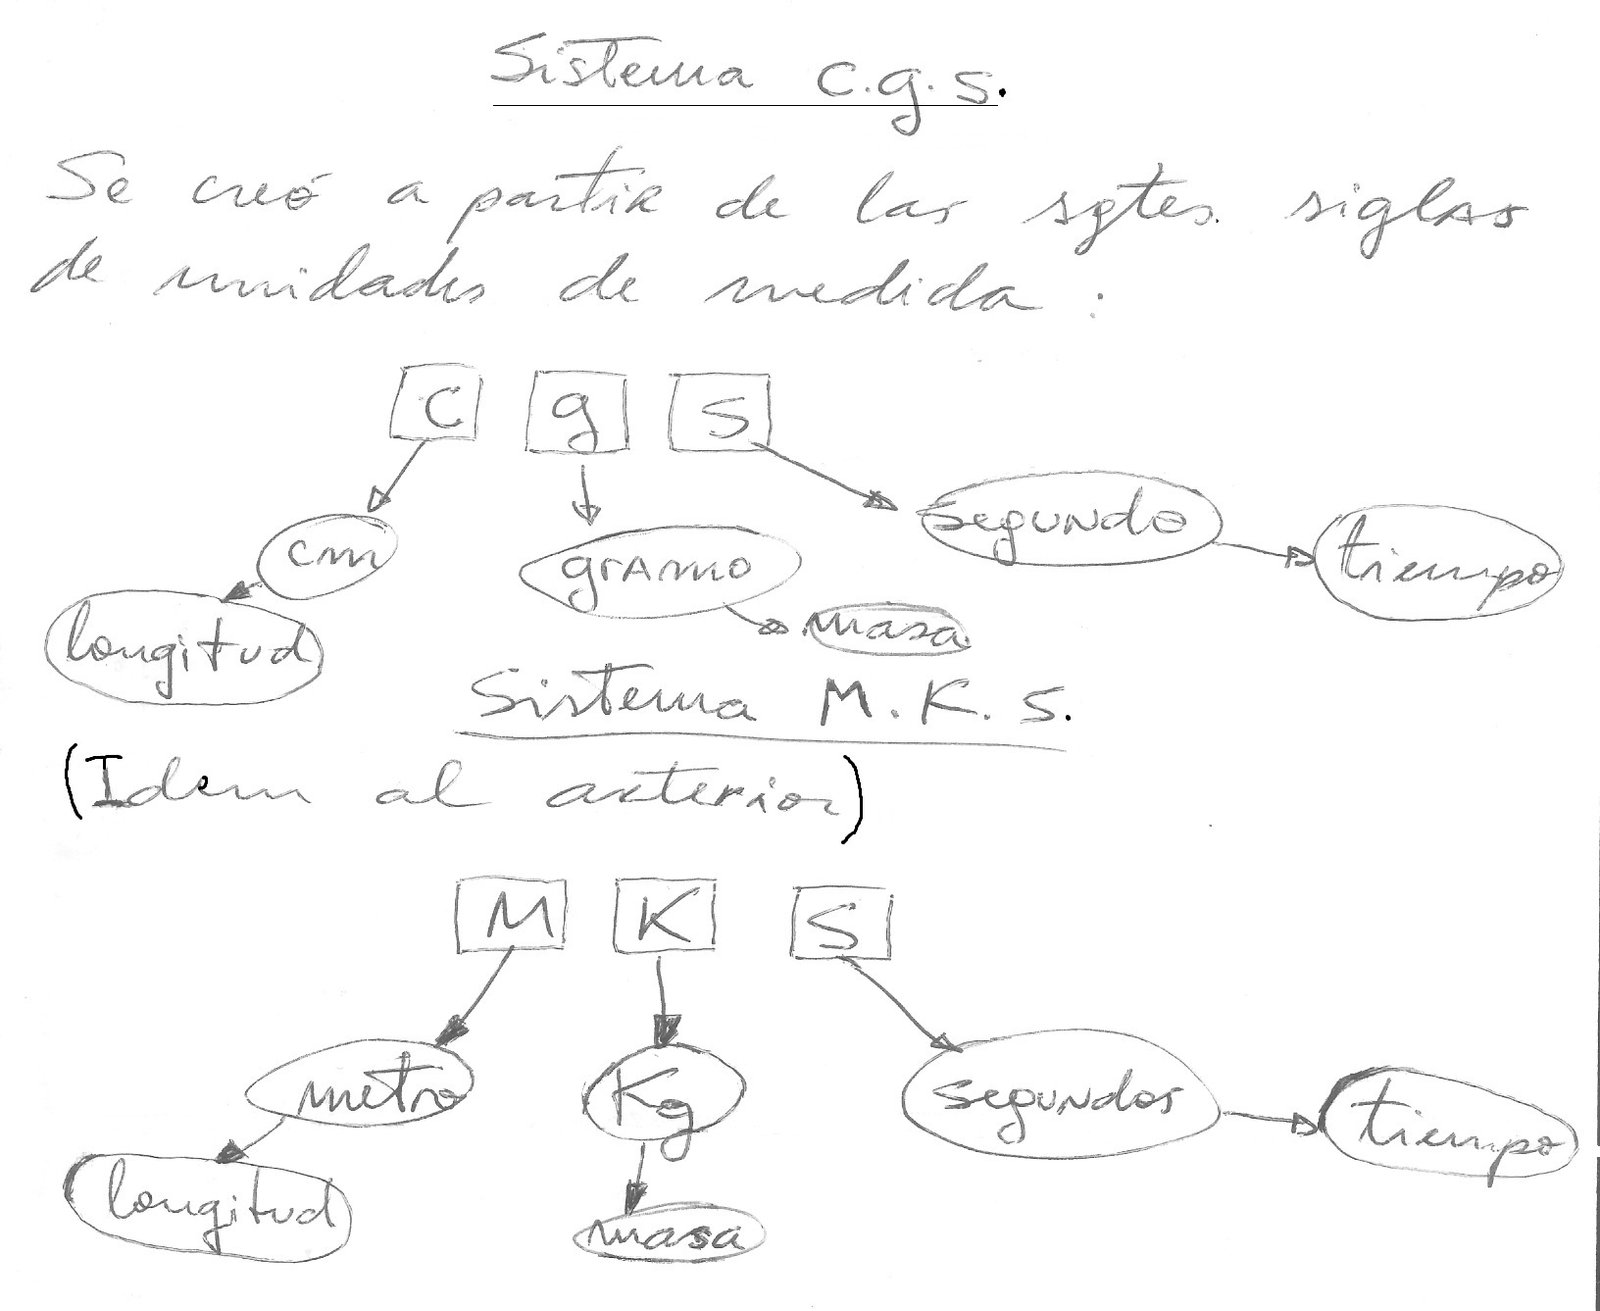 Sistema c.g.s.
Se creó a partir de las sgtes. siglas
de unidades de medida :
C g S
segundo
tiempo
cm
gramo
masa
longitud
Sistema M.K.S.
(Idem al anterior)
M K S
metro
Kg
segundos
tiempo
longitud
masa